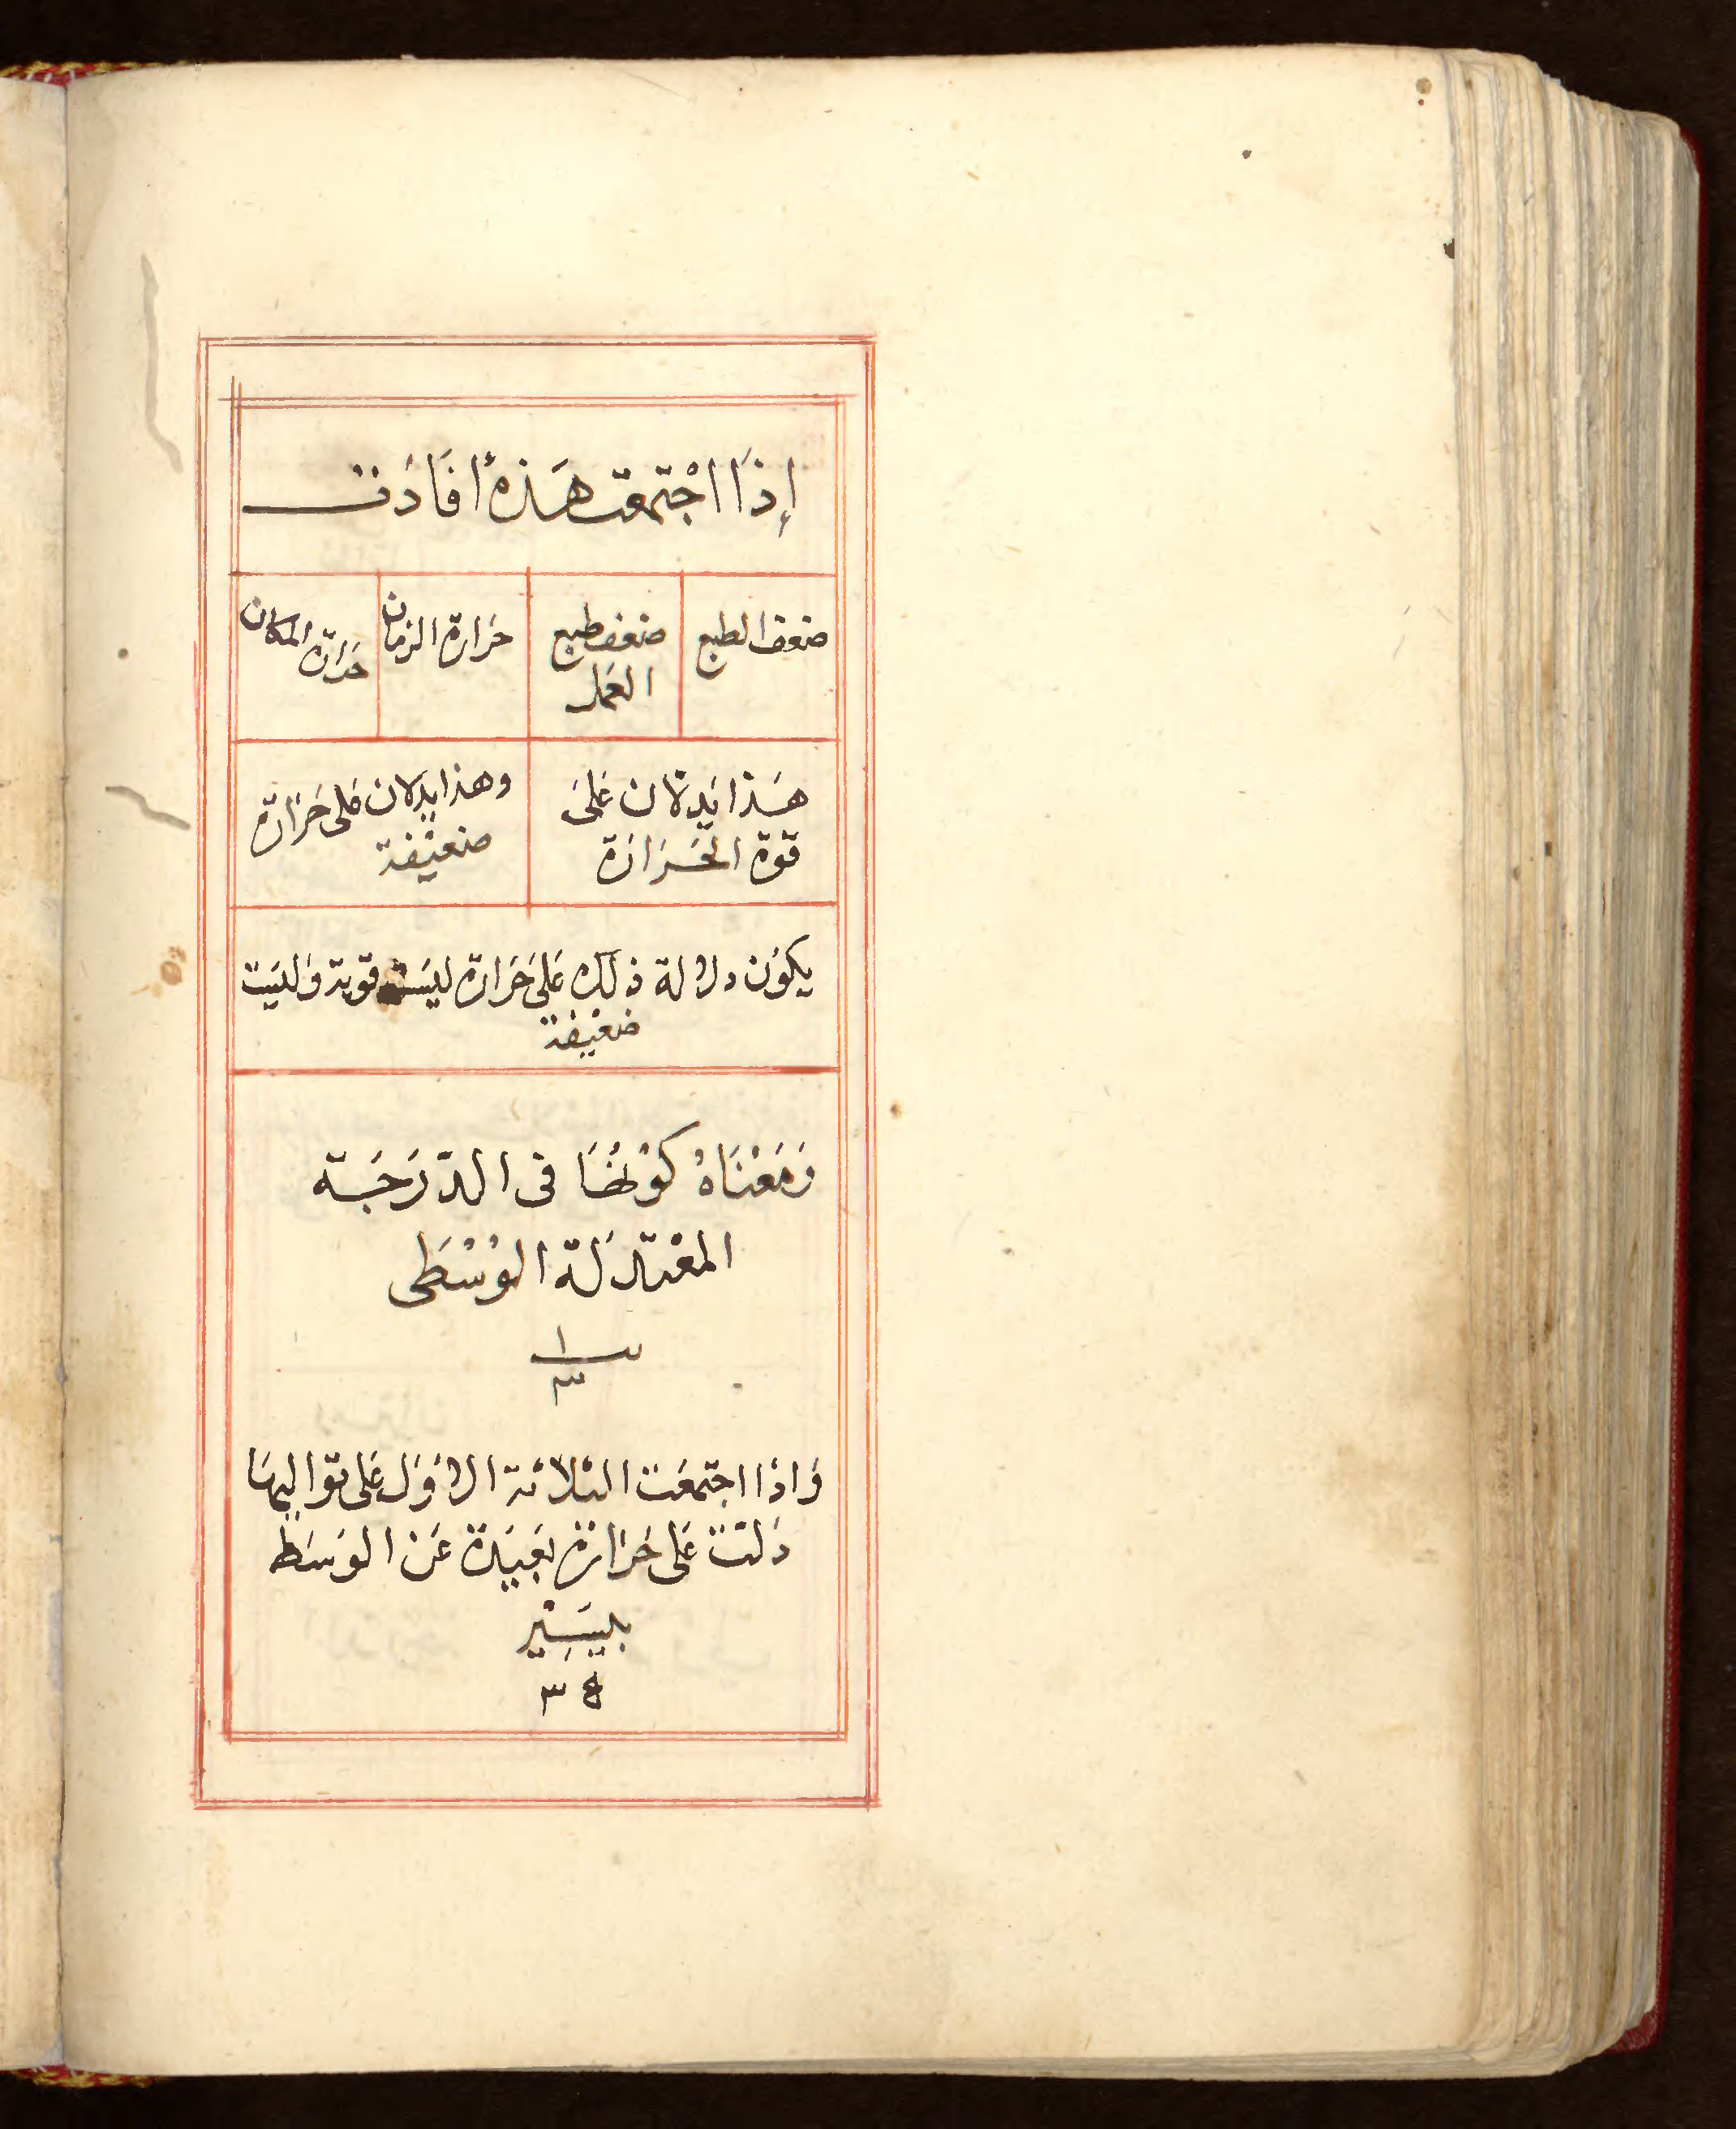 إذَا اجْتمعَت هَذه أفَادَت
ضعف الطبع
ضعف طبع
العَمل
حَرارة الزمان
حَرارة المكان
هَذا يَدلان عَلَى
قوة الحَرَارَة
وهذا يدَلان عَلى حَرَارَة
ضعيْفة
يكوُن دلالة ذلك عَلىَ حَرارة ليسَت قوية وَليَست
ضعيْفة
وَمَعْنَاهُ كَوْنُهَا فى الدّرَجَة
المعْتدَلة الوُسْطَى
١
٣
وَاذا اجتمعَت الثلاثة الأوَل عَلى تواليهَا
دَلّت عَلى حَرَارَة بَعيَدة عَن الوَسَط
بيَسِيْر
٣ ٤